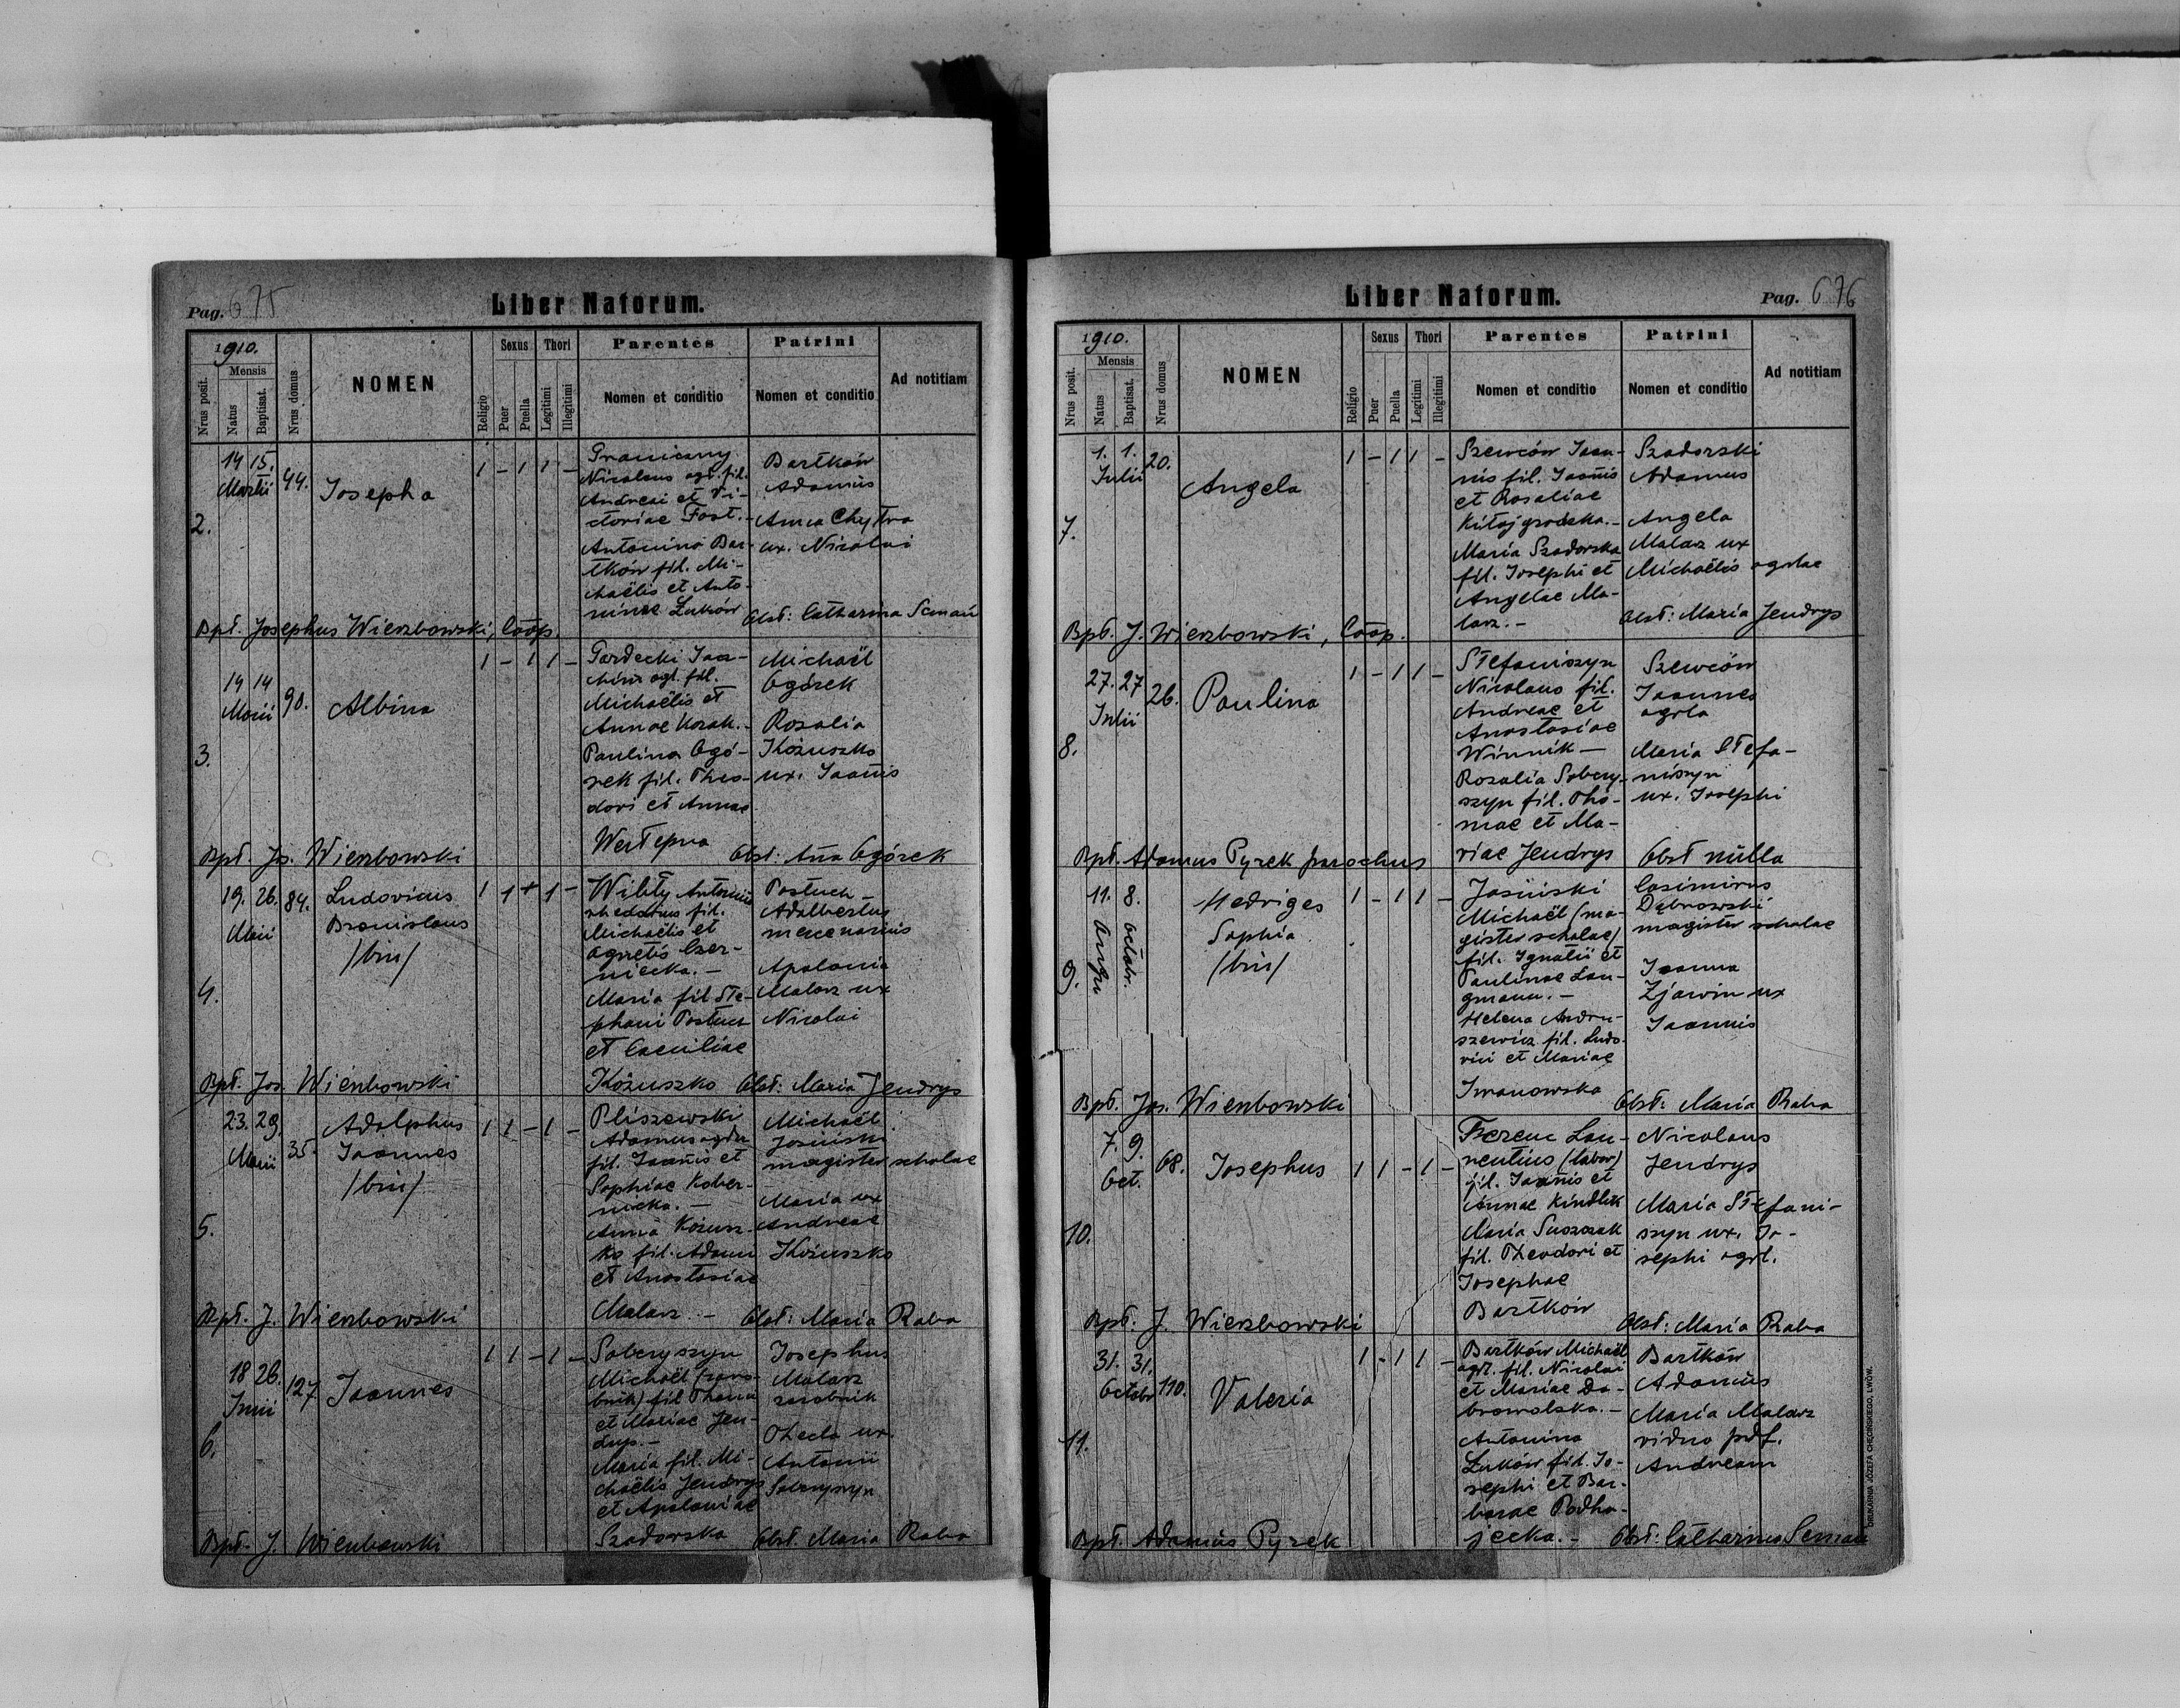 Pag. 675
Liber Natorum.
1910.
Mensis
Nrus posit.
Natus
Baptisat.
Nrus domus
NOMEN
Religio
Sexus
Puer
Puella
Thori
Legitimi
Illegitimi
Parentes
Nomen et conditio
Patrini
Nomen et conditio
Ad notitiam
2.
14 15.
Martii
44.
Josepha
1 - 1 1 -
Graniczny
Nicolaus agl. fil.
Andreai et Vi-
ctoriae Fost.-
Antonina Bar-
tków fil. Mi-
chaëlis et Anto-
ninae Łuków
Bartków
Adamus
Anna Chytra
ux. Nicolai
Obst: Catharina Seman
Bpt. Josephus Wierzbowski, Coop.
3.
14 14
Maii
90.
Albina
1 - 1 1 -
Gardecki Joa-
chim agl. fil.
Michaëlis et
Annae Kozak.-
Paulina Ogó-
rek fil. Theo-
dori et Annae
Wertepna
Michaël
Ogórek
Rozalia
Kożuszko
ux. Joañis
Obst: Aña Ogórek
Bpt. Js. Wierzbowski
4.
19. 26.
Maii
84.
Ludovicus
Bronislaus
/bin/
1 1 + 1 -
Wility Antonius
rhedarius fil.
Michaëlis et
Agnetis Czer-
niecka.-
Maria fil Ste-
phani Postuch
et Caeciliae
Kożuszko
Postuch
Adalbertus
mercenarius
Apolonia
Malarz ux
Nicolai
Obst: Maria Jendrys
Bpt. Jos. Wierzbowski
5.
23. 29
Maii
35.
Adolphus
Joannes
/bin/
1 1 - 1 -
Pliszewski
Adamus
fil. Joañis et
Sophiae Kober-
nicka.-
Anna Kożusz-
ko fil. Adami
et Anastasiae
Malarz.-
Michaël
Jasiński
magister scholae
Maria ux
Andreae
Kożuszko
Obst: Maria Raba
Bpt. J. Wierzbowski
6.
18 26.
Junii
127.
Joannes
1 1 - 1 -
Soberyszyn
Michaël (zaro-
bnik) fil Thoma
et Mariae Jen-
drys.-
Maria fil. Mi-
chaëlis Jendrys
et Apoloniae
Szadorska
Josephus
Malarz
zarobnik
Thecla ux.
Antonii
Soberyszyn
Obst. Maria Raba
Bpt. J. Wierzbowski
Liber Natorum.
Pag. 676
1910.
Mensis
Nrus posit.
Natus
Baptisat.
Nrus domus
NOMEN
Religio
Sexus
Puer
Puella
Thori
Legitimi
Illegitimi
Parentes
Nomen et conditio
Patrini
Nomen et conditio
Ad notitiam
7.
1. 1.
Julii
20.
Angela
1 - 1 1 -
Szewców Joan-
nis fil. Joañis
et Rosaliae
Kitajgrodzka.-
Maria Szadorska
fil. Josephi et
Angelae Ma-
larz.-
Szadorski
Adamus
Angela
Malarz ux
Michaëlis agolae
Obst: Maria Jendrys
Bpt. J. Wierzbowski, Coop.
8.
27. 27
Julii
26.
Paulina
1 - 1 1 -
Stefaniszyn
Nicolaus fil.
Andreae et
Anastasiae
Winnik -
Rozalia Sobery-
szyn fil. Tho-
mae et Ma-
riae Jendrys
Szewców
Joannes
agrla
Maria Stefa-
niszyn
ux. Josephi
Obst nulla
Bpt. Adamus Pyrek parochus
9.
11. 8.
Augu
octobr.
Hedriges
Sophia
/bin/
1 - 1 1 -
Jasiński
Michaël (ma-
gister scholae)
fil. Ignatii et
Paulinae Lan-
gmann.-
Helena Andru-
szewicz fil. Ludo-
vici et Mariae
Iwanowska
Casimirus
Dąbrowski
magister scholae
Joanna
Zjawin ux
Joannis
Obst: Maria Raba
Bpt. Jos. Wierzbowski
10.
7. 9.
Oct.
68.
Josephus
1 1 - 1 -
Ferenc Lau-
rentius (labor)
fil. Joañis et
Annae Kindlik
Maria Suszczak
fil. Theodori et
Josephae
Bartków
Nicolaus
Jendrys
Maria Stefani-
szyn ux. Jo-
sephi agrl.
Obst: Maria Raba
Bpt. J. Wierzbowski
11.
31. 31.
Octobr
110.
Valeria
1 - 1 1 -
Bartków Michaël
agr. fil. Nicolai
et Mariae Da-
browolska.-
Antonina
Łuków fil. Jo-
sephi et Bar-
barae Podha-
jecka.-
Bartków
Adamus
Maria Malarz
vidua pdf.
Andream
Obst: Catharina Seman
Bpt. Adamus Pyrek
DRUKARNIA JÓZEFA CHĘCIŃSKIEGO, LWÓW.